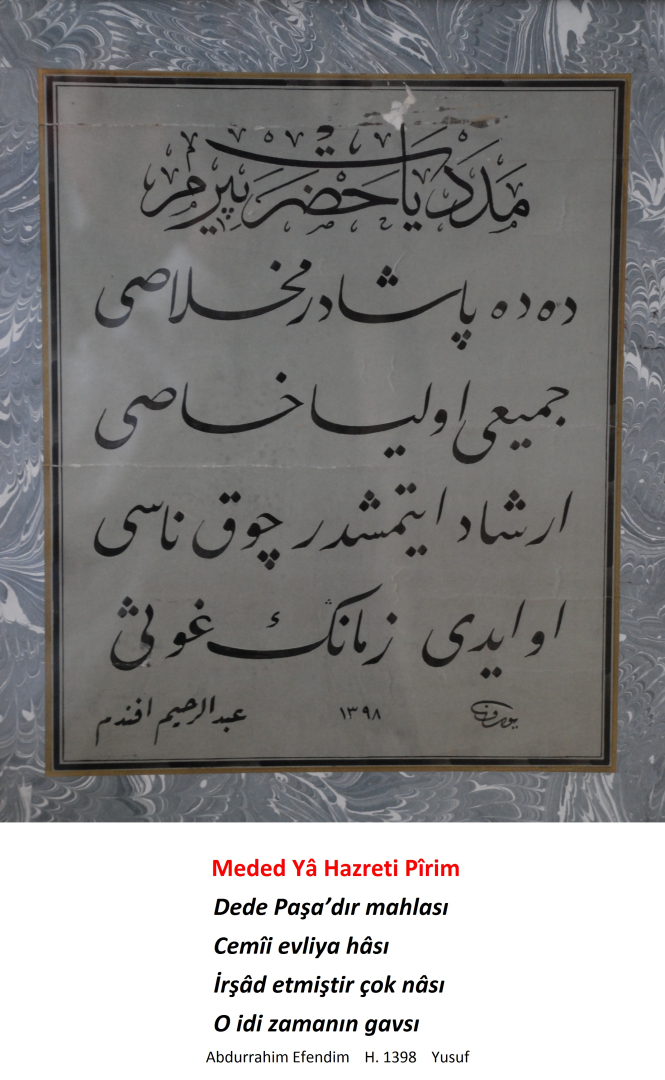 مدد یا حضرت پیرم
ده ده پاشادر مخلاصی
جمیعی اولیا خاصی
ارشاد ایتمشدر چوق ناسی
او ایدی زمانڭ غوثی
یوسف ١٣٩٨ عبدالرحیم افندم
Meded Yâ Hazreti Pîrim
Dede Paşa’dır mahlası
Cemîi evliya hâsı
İrşâd etmiştir çok nâsı
O idi zamanın gavsı
Abdurrahim Efendim H. 1398 Yusuf